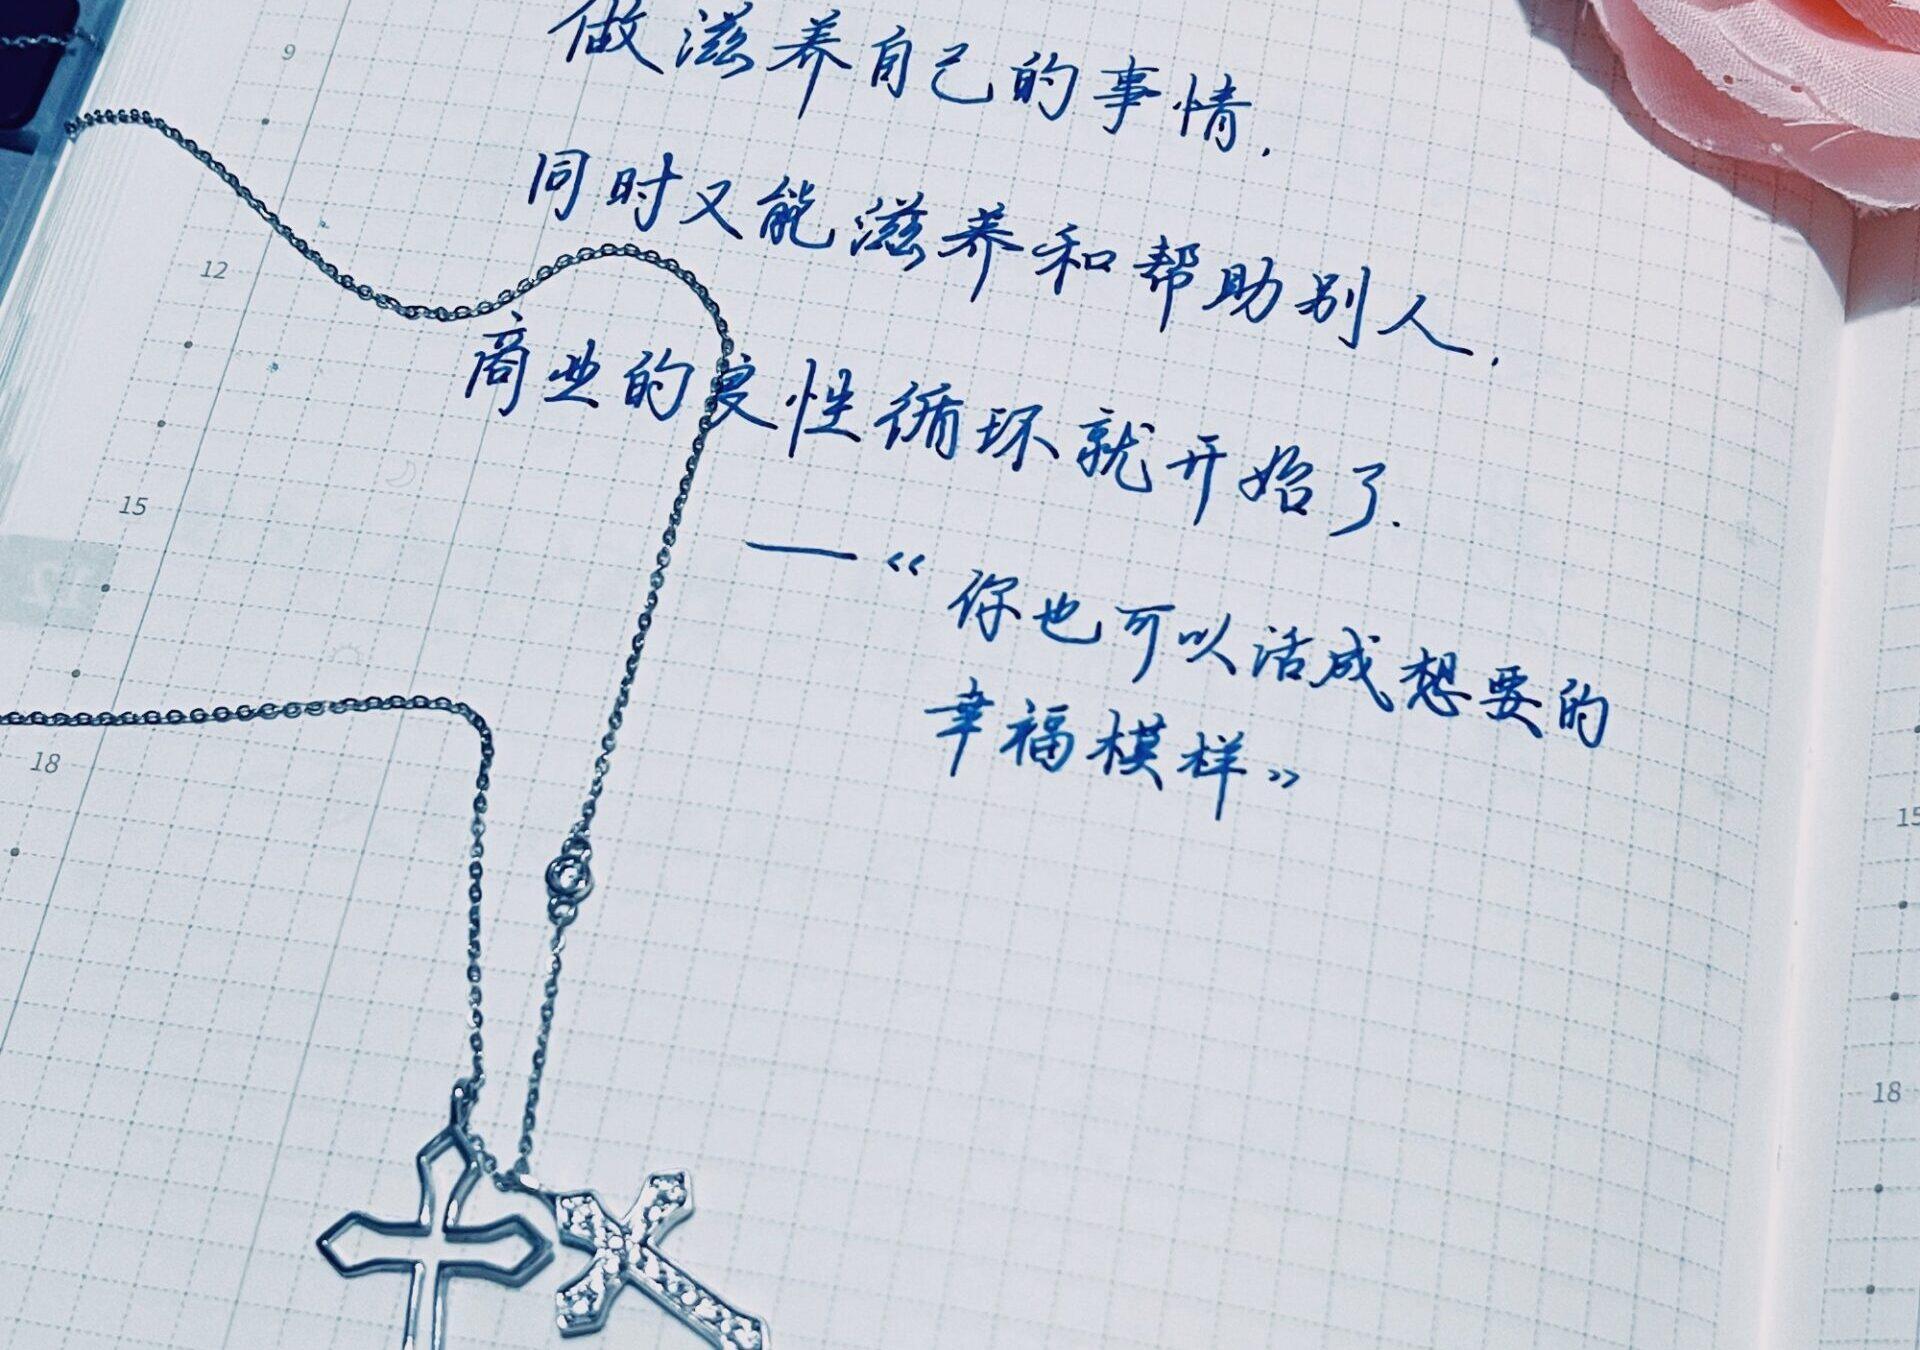 做滋养自己的事情.
同时又能滋养和帮助别人.
商业的良性循环就开始了.
—《你也可以活成想要的
幸福模样》
9
12
15
18
15
18